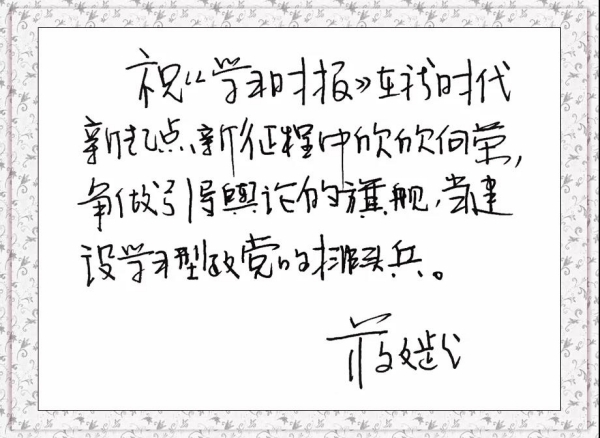 祝《学习时报》在新时代
新起点、新征程中欣欣向荣,
争做引导舆论的旗舰,当建
设学习型政党的排头兵。
蒋文龄